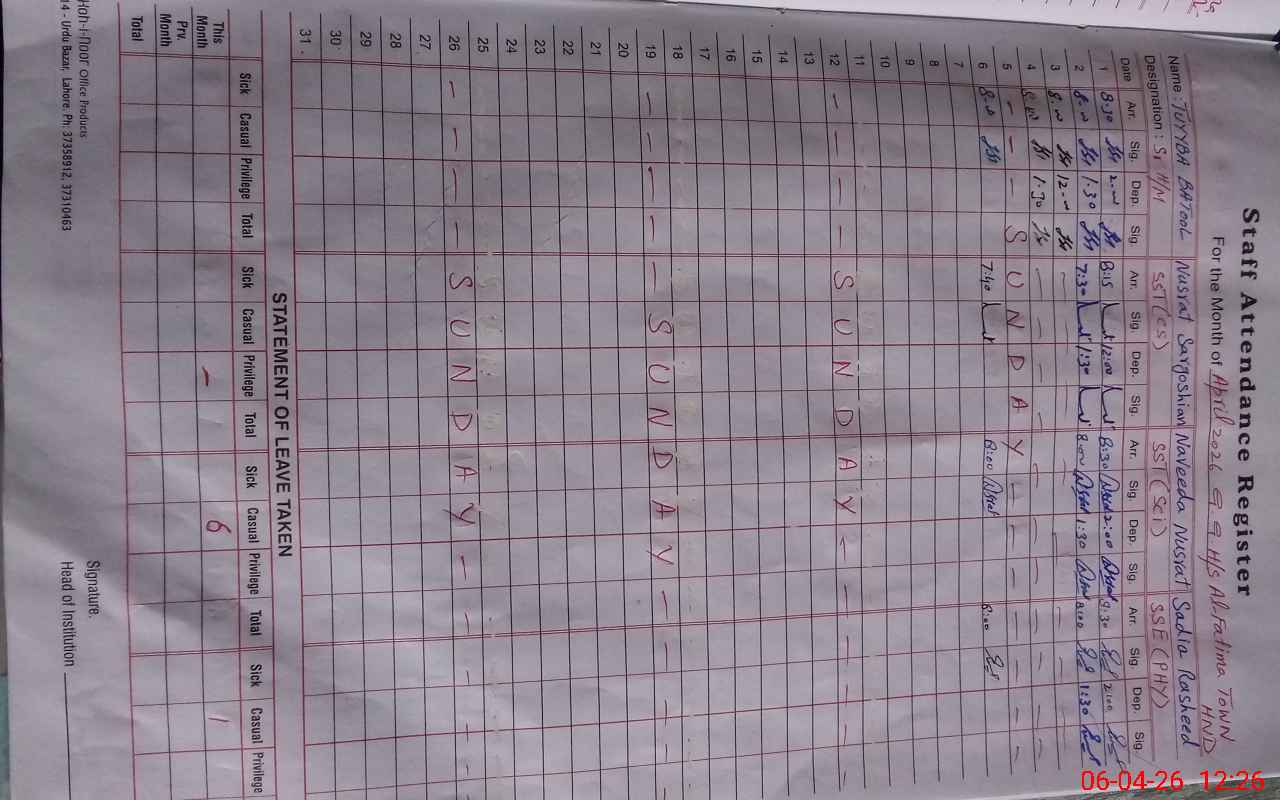 Staff Attendance Register
For the Month of April 2026 G G H/S Al-Fatima TOWN
HND
Name: TUYYBA BATOOL Nusrat Sargoshian Naveeda Nusrat Sadia Rasheed
Designation: Sr H/M SST(CS) SST(Sci) SSE(PHY)
Date Arr. Sig. Dep. Sig. Arr. Sig. Dep. Sig. Arr. Sig. Dep. Sig. Arr. Sig. Dep. Sig.
1 8:30 2:00 8:15 12:00 8:30 2:00 8:30 2:00
2 8:00 1:30 7:30 1:30 8:00 1:30 8:00 1:30
3 8:00 12:00 — — — — —
4 8:00 1:30 — — — — —
5 — — — SUNDAY — — — — — —
6 8:00 7:40 8:00 8:00
7
8
9
10
11
12 — — — — SUNDAY — — — — — —
13
14
15
16
17
18
19 — — — — — SUNDAY — — — — —
20
21
22
23
24
25
26 — — — — SUNDAY — — — — —
27
28
29
30
31
STATEMENT OF LEAVE TAKEN
Sick Casual Privilege Total Sick Casual Privilege Total Sick Casual Privilege Total Sick Casual Privilege
This Month — 6 1
Prv. Month
Total
Signature.
Head of Institution
Office Products
14 - Urdu Bazar, Lahore. Ph: 37358912, 37310463
06-04-26 12:26